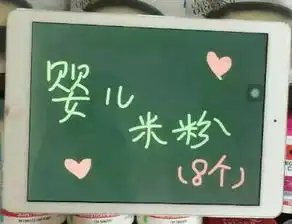 婴儿
米粉
(8个)